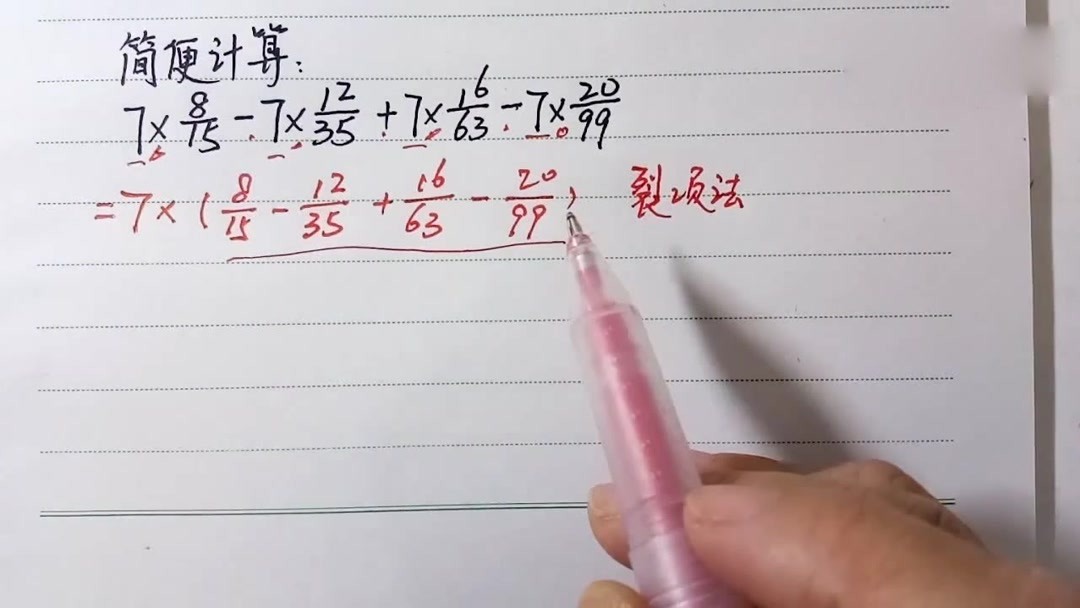 简便计算:
7×8/15-7×12/35+7×16/63-7×20/99
=7×(8/15-12/35+16/63-20/99) 裂项法